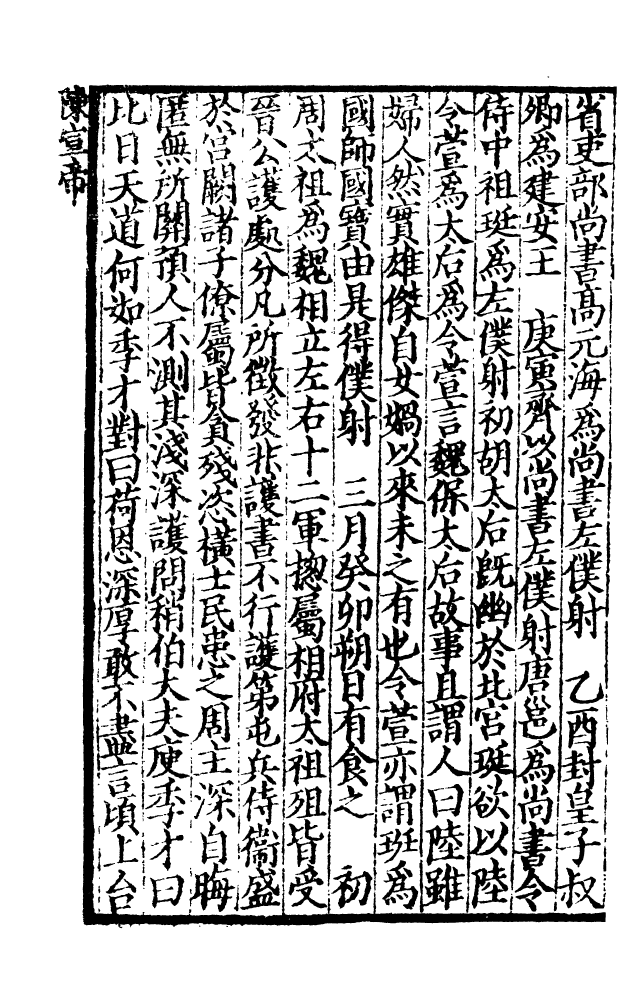 省吏部尚書高元海爲尚書左僕射　乙酉封皇子叔
卿爲建安王　庚寅齊以尚書左僕射唐邕爲尚書令
侍中祖珽爲左僕射初胡太后旣幽於北宮珽欲以陸
令萱爲太后爲令萱言魏保太后故事且謂人曰陸雖
婦人然實雄傑自女媧以來未之有也令萱亦謂珽爲
國師國寶由是得僕射　三月癸卯朔日有食之　初
周太祖爲魏相立左右十二軍揔屬相府太祖殂皆受
晉公護處分凡所徵發非護書不行護第屯兵侍衞盛
於宮闕諸子僚屬皆貪殘恣橫士民患之周主深自晦
匿無所關預人不測其淺深護問稍伯大夫庾季才曰
比日天道何如季才對曰荷恩深厚敢不盡言頃上台
陳宣帝